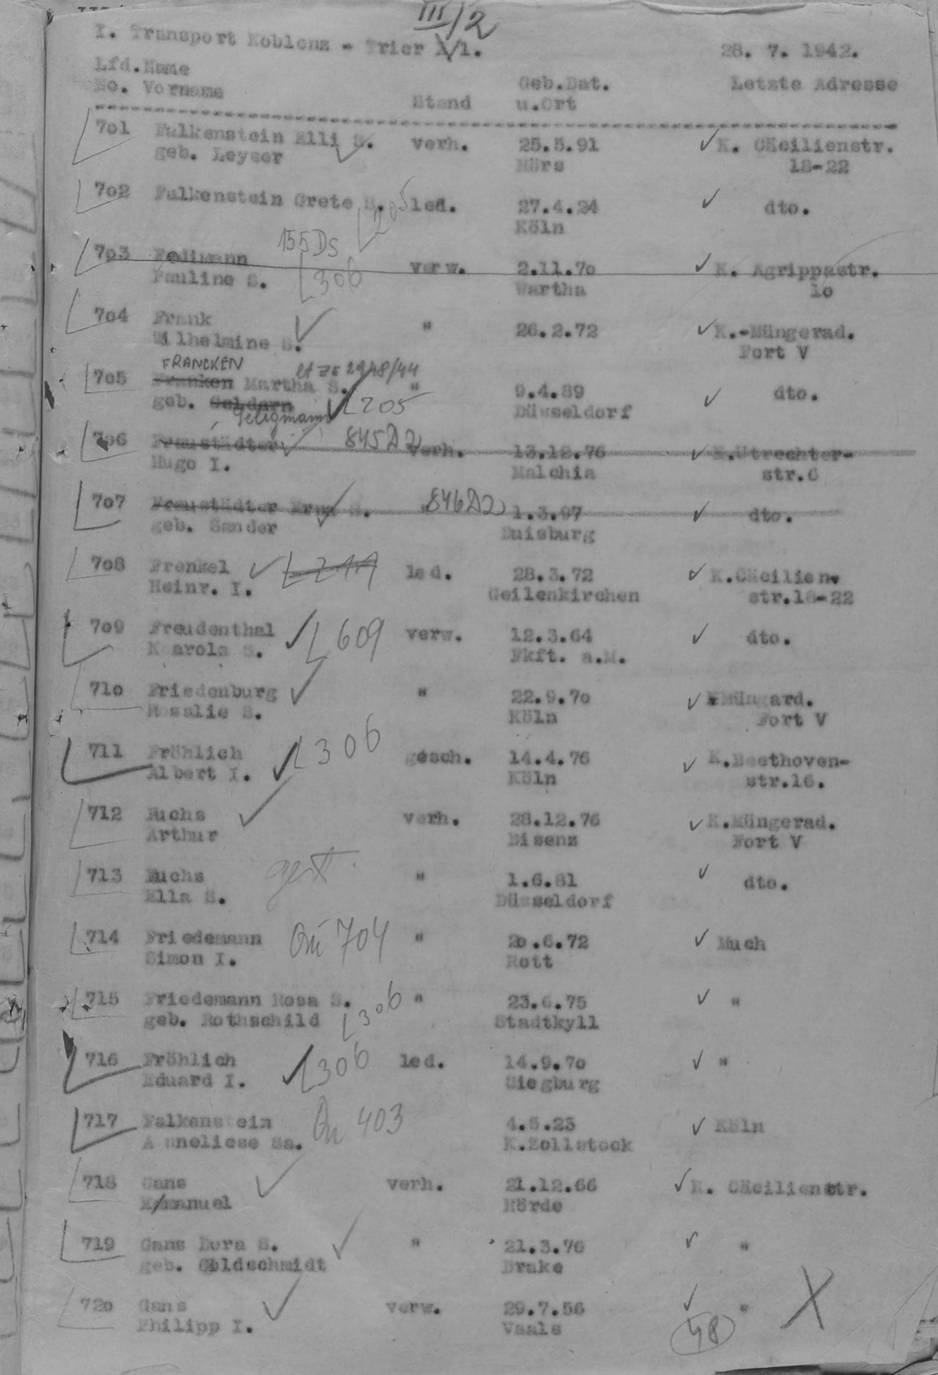 III/2
I. Transport Koblenz - Trier X/1. 28. 7. 1942.
Lfd. Name Geb.Dat. Letzte Adresse
No. Vorname Stand u.Ort
701 Falkenstein Elli S. verh. 25.5.91 K. Cäcilienstr.
geb. Leyser Mörs 18-22
702 Falkenstein Grete S. led. 27.4.24 dto.
L205 Köln
155DS
703 Feilmann verw. 2.11.70 K. Agrippastr.
Pauline S. L306 Wartha 10
704 Frank " 26.2.72 K.-Müngerad.
Wilhelmine S. Fort V
FRANCKEN
705 Franken Martha S. " 9.4.89 dto.
geb. Geldern L205 Düsseldorf
Seligmann
706 Freustädter 845D2 verh. 13.12.76 K.Utrechter-
Hugo I. Malchia str.6
707 Freustädter Erna S. " 846D2 1.3.97 dto.
geb. Sander Duisburg
708 Frenkel led. 28.3.72 K.Cäcilien-
Heinr. I. Geilenkirchen str.18-22
709 Freudenthal L609 verw. 12.3.64 dto.
Karola S. Fkft. a.M.
710 Friedenburg " 22.9.70 Müngard.
Rosalie S. Köln Fort V
711 Fröhlich L306 gesch. 14.4.76 K.Beethoven-
Albert I. Köln str.16.
712 Fuchs verh. 28.12.76 K.Müngerad.
Arthur Bisenz Fort V
713 Fuchs gest. " 1.6.81 dto.
Ella S. Düsseldorf
714 Friedemann Qu 704 " 20.6.72 Much
Simon I. Rott
715 Friedemann Rosa S. " 23.6.75 "
geb. Rothschild L306 Stadtkyll
716 Fröhlich L306 led. 14.9.70 "
Eduard I. Siegburg
717 Falkenstein Qu 403 4.5.23 Köln
Anneliese Sa. K.Zollstock
718 Gans verh. 21.12.66 K. Cäcilienstr.
Emanuel Hörde
719 Gans Dora S. " 21.3.76 "
geb. Goldschmidt Brake
720 Gans verw. 29.7.56 "
Philipp I. Vaals 48